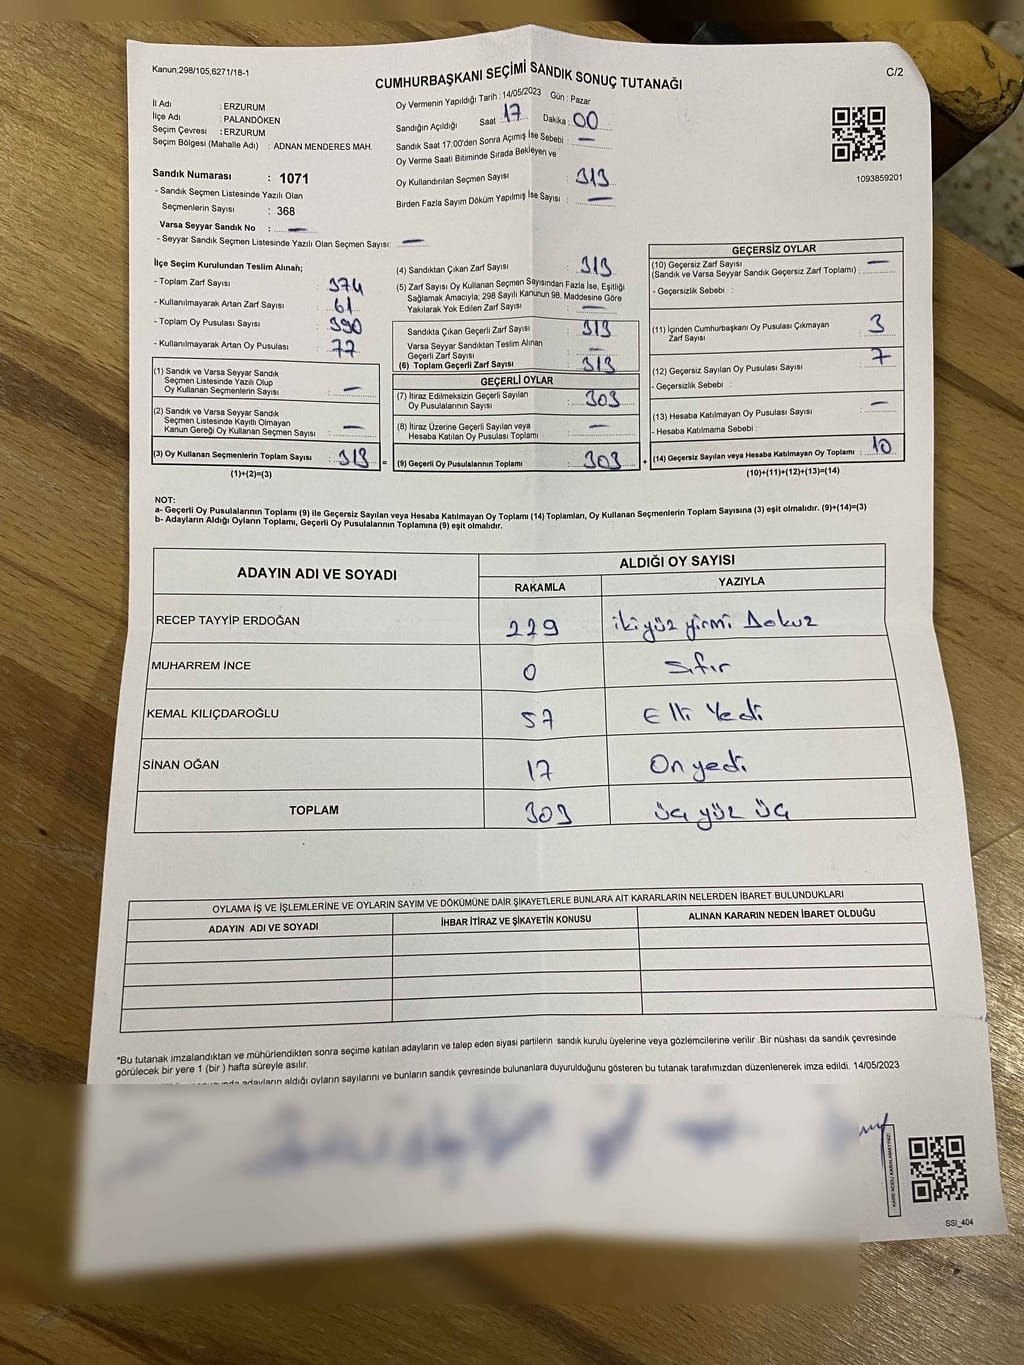 Kanun;298/105,6271/18-1
CUMHURBAŞKANI SEÇİMİ SANDIK SONUÇ TUTANAĞI
C/2
İl Adı : ERZURUM
İlçe Adı : PALANDÖKEN
Seçim Çevresi : ERZURUM
Seçim Bölgesi (Mahalle Adı) : ADNAN MENDERES MAH.
Sandık Numarası : 1071
- Sandık Seçmen Listesinde Yazılı Olan
Seçmenlerin Sayısı : 368
Varsa Seyyar Sandık No : —
- Seyyar Sandık Seçmen Listesinde Yazılı Olan Seçmen Sayısı: —
Oy Vermenin Yapıldığı Tarih : 14/05/2023 Gün : Pazar
Sandığın Açıldığı Saat : 17 Dakika : 00
Sandık Saat 17.00'den Sonra Açımış İse Sebebi : —
Oy Verme Saati Bitiminde Sırada Bekleyen ve
Oy Kullandırılan Seçmen Sayısı : 313
Birden Fazla Sayım Döküm Yapılmış İse Sayısı : —
1093859201
İlçe Seçim Kurulundan Teslim Alınan;
- Toplam Zarf Sayısı : 374
- Kullanılmayarak Artan Zarf Sayısı : 61
- Toplam Oy Pusulası Sayısı : 390
- Kullanılmayarak Artan Oy Pusulası : 77
(1) Sandık ve Varsa Seyyar Sandık
Seçmen Listesinde Yazılı Olup
Oy Kullanan Seçmenlerin Sayısı : —
(2) Sandık ve Varsa Seyyar Sandık
Seçmen Listesinde Kayıtlı Olmayan
Kanun Gereği Oy Kullanan Seçmen Sayısı : —
(3) Oy Kullanan Seçmenlerin Toplam Sayısı : 313 =
(1)+(2)=(3)
(4) Sandıktan Çıkan Zarf Sayısı : 313
(5) Zarf Sayısı Oy Kullanan Seçmen Sayısından Fazla İse, Eşitliği
Sağlamak Amacıyla; 298 Sayılı Kanunun 98. Maddesine Göre
Yakılarak Yok Edilen Zarf Sayısı : —
Sandıkta Çıkan Geçerli Zarf Sayısı : 313
Varsa Seyyar Sandıktan Teslim Alınan
Geçerli Zarf Sayısı : —
(6) Toplam Geçerli Zarf Sayısı : 313
GEÇERLİ OYLAR
(7) İtiraz Edilmeksizin Geçerli Sayılan
Oy Pusulalarının Sayısı : 303
(8) İtiraz Üzerine Geçerli Sayılan veya
Hesaba Katılan Oy Pusulası Toplamı : —
(9) Geçerli Oy Pusulalarının Toplamı : 303 +
GEÇERSİZ OYLAR
(10) Geçersiz Zarf Sayısı
(Sandık ve Varsa Seyyar Sandık Geçersiz Zarf Toplamı) : —
- Geçersizlik Sebebi :
(11) İçinden Cumhurbaşkanı Oy Pusulası Çıkmayan
Zarf Sayısı : 3
(12) Geçersiz Sayılan Oy Pusulası Sayısı : 7
- Geçersizlik Sebebi :
(13) Hesaba Katılmayan Oy Pusulası Sayısı : —
- Hesaba Katılmama Sebebi :
(14) Geçersiz Sayılan veya Hesaba Katılmayan Oy Toplamı : 10
(10)+(11)+(12)+(13)=(14)
NOT:
a- Geçerli Oy Pusulalarının Toplamı (9) ile Geçersiz Sayılan veya Hesaba Katılmayan Oy Toplamı (14) Toplamları, Oy Kullanan Seçmenlerin Toplam Sayısına (3) eşit olmalıdır. (9)+(14)=(3)
b- Adayların Aldığı Oyların Toplamı, Geçerli Oy Pusulalarının Toplamına (9) eşit olmalıdır.
ADAYIN ADI VE SOYADI
ALDIĞI OY SAYISI
RAKAMLA YAZIYLA
RECEP TAYYİP ERDOĞAN 229 ikiyüz yirmi Dokuz
MUHARREM İNCE 0 Sıfır
KEMAL KILIÇDAROĞLU 57 Elli Yedi
SİNAN OĞAN 17 On yedi
TOPLAM 303 üç yüz üç
OYLAMA İŞ VE İŞLEMLERİNE VE OYLARIN SAYIM VE DÖKÜMÜNE DAİR ŞİKAYETLERLE BUNLARA AİT KARARLARIN NELERDEN İBARET BULUNDUKLARI
ADAYIN ADI VE SOYADI İHBAR İTİRAZ VE ŞİKAYETİN KONUSU ALINAN KARARIN NEDEN İBARET OLDUĞU
*Bu tutanak imzalandıktan ve mühürlendikten sonra seçime katılan adayların ve talep eden siyasi partilerin sandık kurulu üyelerine veya gözlemcilerine verilir .Bir nüshası da sandık çevresinde
görülecek bir yere 1 (bir ) hafta süreyle asılır.
adayların aldığı oyların sayılarını ve bunların sandık çevresinde bulunanlara duyurulduğunu gösteren bu tutanak tarafımızdan düzenlenerek imza edildi. 14/05/2023
KARE KODU KARALAMAYINIZ!
SSI_404